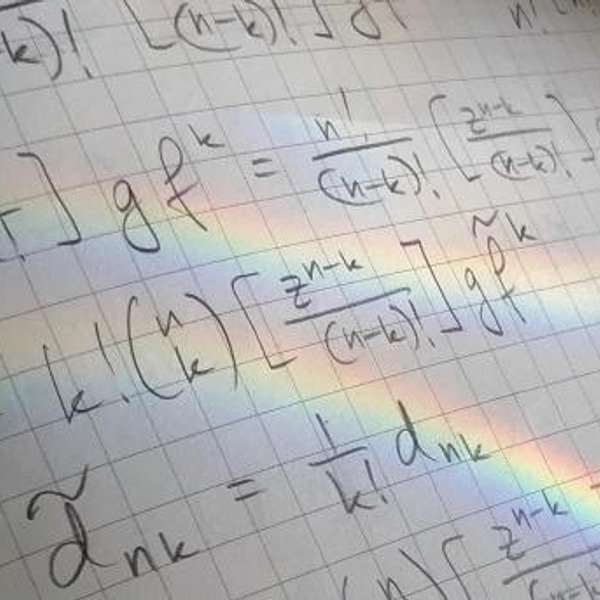 k)! [(n-k)!] gf n! [n
!] gf^k = n!/(n-k)! [z^{n-k}/(n-k)!]
k! (n k) [z^{n-k}/(n-k)!] g\tilde{f}^k
\tilde{d}_{nk} = 1/k! d_{nk}
(n) [z^{n-k}/(n-k)!